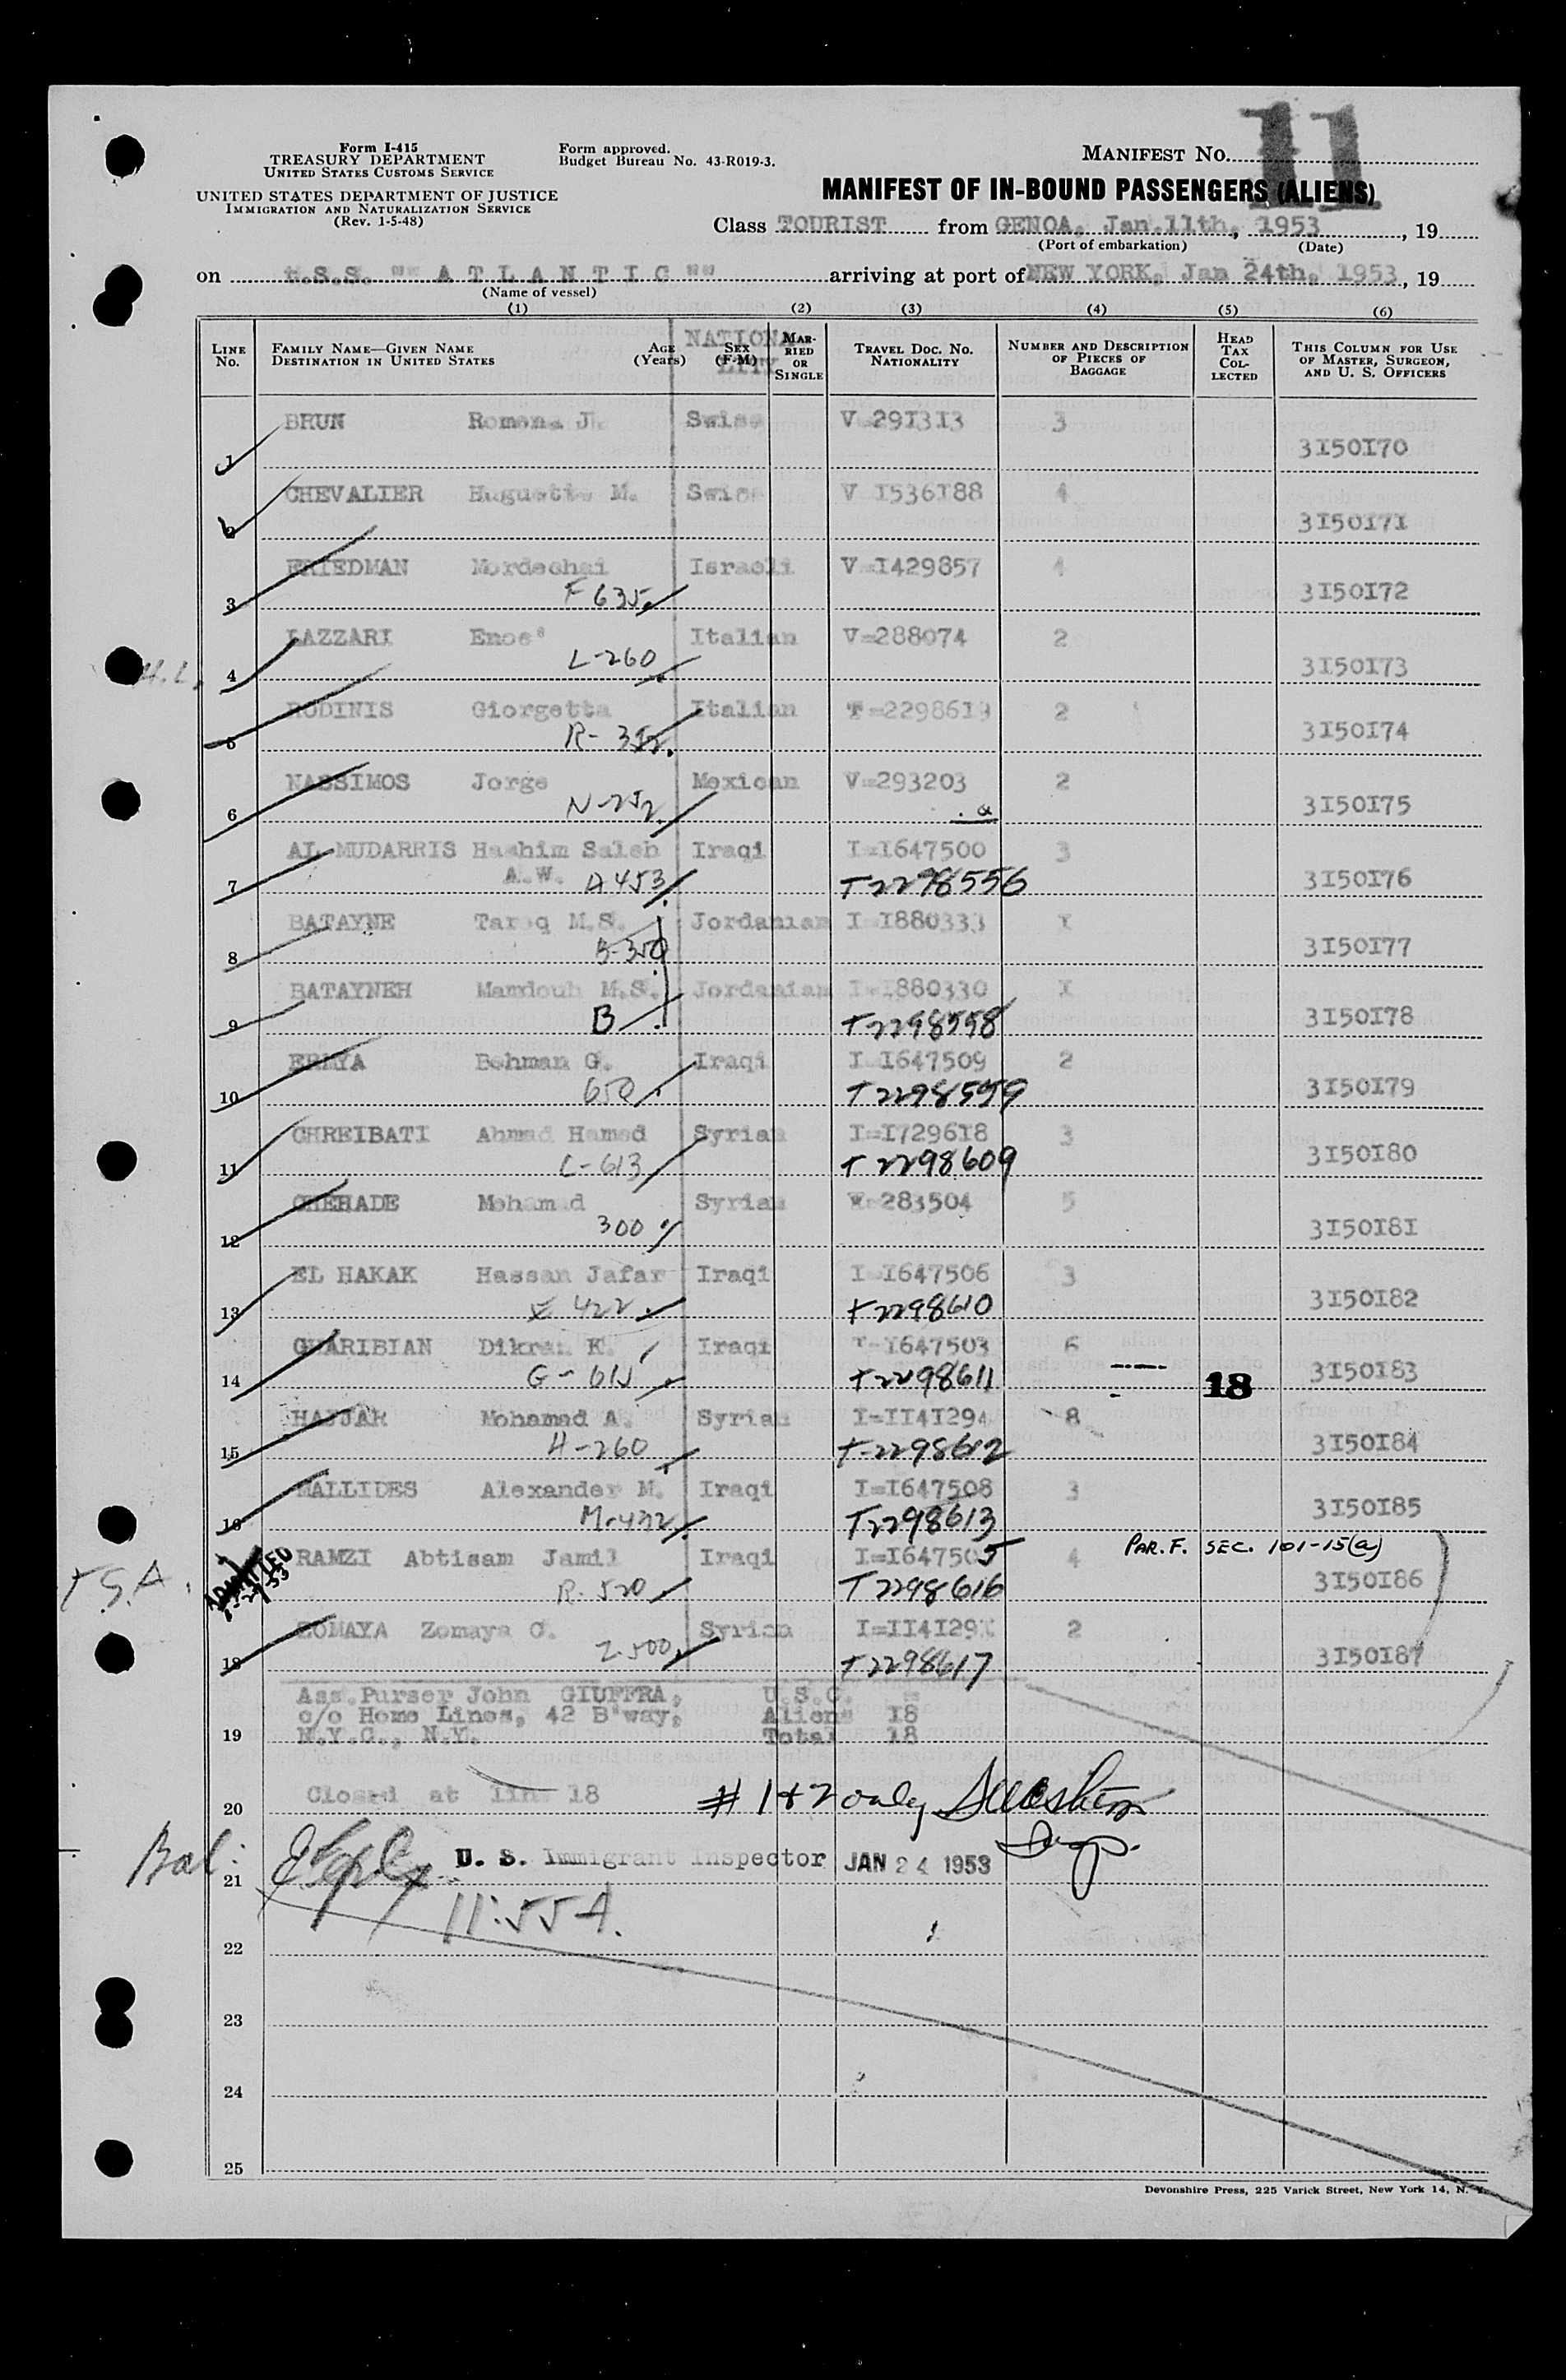 11
Form I-415
TREASURY DEPARTMENT
UNITED STATES CUSTOMS SERVICE
Form approved.
Budget Bureau No. 43-R019-3.
MANIFEST NO.
UNITED STATES DEPARTMENT OF JUSTICE
IMMIGRATION AND NATURALIZATION SERVICE
(Rev. 1-5-48)
MANIFEST OF IN-BOUND PASSENGERS (ALIENS)
Class TOURIST from GENOA, Jan.11th, 1953, 19
(Port of embarkation) (Date)
on S.S. "" A T L A N T I C "" arriving at port of NEW YORK, Jan 24th, 1953, 19
(Name of vessel)
(1) (2) (3) (4) (5) (6)
LINE NO. FAMILY NAME—GIVEN NAME DESTINATION IN UNITED STATES AGE (Years) SEX (F-M) NATIONALITY MARRIED OR SINGLE TRAVEL DOC. NO. NATIONALITY NUMBER AND DESCRIPTION OF PIECES OF BAGGAGE HEAD TAX COLLECTED THIS COLUMN FOR USE OF MASTER, SURGEON, AND U. S. OFFICERS
BRUN Romana J. Swiss V=291313 3
1 3150170
CHEVALIER Huguette M. Swiss V 1536188 4
2 3150171
FRIEDMAN Mordechai Israeli V=1429857 4
3 F 635. 3150172
LAZZARI Enos Italian V=288074 2
H.L. 4 L-260 3150173
RODINIS Giorgetta Italian T=2298619 2
5 R-352. 3150174
NASSIMOS Jorge Mexican V=293203 2
6 N-252. 3150175
AL MUDARRIS Hashim Saleh Iraqi I=1647500 3
7 A.W. A 453 T2298556 3150176
BATAYNE Tareq M.S. Jordanian I=1880333 1
8 B-350 3150177
BATAYNEH Mamdouh M.S. Jordanian I=1880330 1
9 B T2298558 3150178
ERMYA Behman G. Iraqi I 1647509 2
10 650 T2298559 3150179
CHREIBATI Ahmad Hamad Syrian I=1729618 3
11 C-613 T2298609 3150180
CHEHADE Mohamad Syrian V=283504 5
12 300 3150181
EL HAKAK Hassan Jafar Iraqi I=1647506 3
13 E 422. T2298610 3150182
GHARIBIAN Dikran K. Iraqi I-1647503 6
14 G-615 T2298611 18 3150183
HAJJAR Mohamad A. Syrian I=1141294 8
15 H-260 T-2298612 3150184
MALLIDES Alexander M. Iraqi I=1647508 3
16 M-432 T2298613 3150185
ADMITTED RAMZI Abtisam Jamil Iraqi I=1647505 4 PAR. F. SEC. 101-15(a)
R-520 T2298616 3150186
ZOMAYA Zomaya O. Syrian I=114129 2
18 Z-500. T2298617 3150187
Ass.Purser John GIUFFRA, U.S.C. =
c/o Home Lines, 42 B'way, Aliens 18
19 N.Y.C., N.Y. Total 18
Closed at line 18
20 # 1+2 only
Insp.
Bal:
21 U. S. Immigrant Inspector JAN 24 1953
11:55 A.
22
23
24
25
Devonshire Press, 225 Varick Street, New York 14, N. Y.